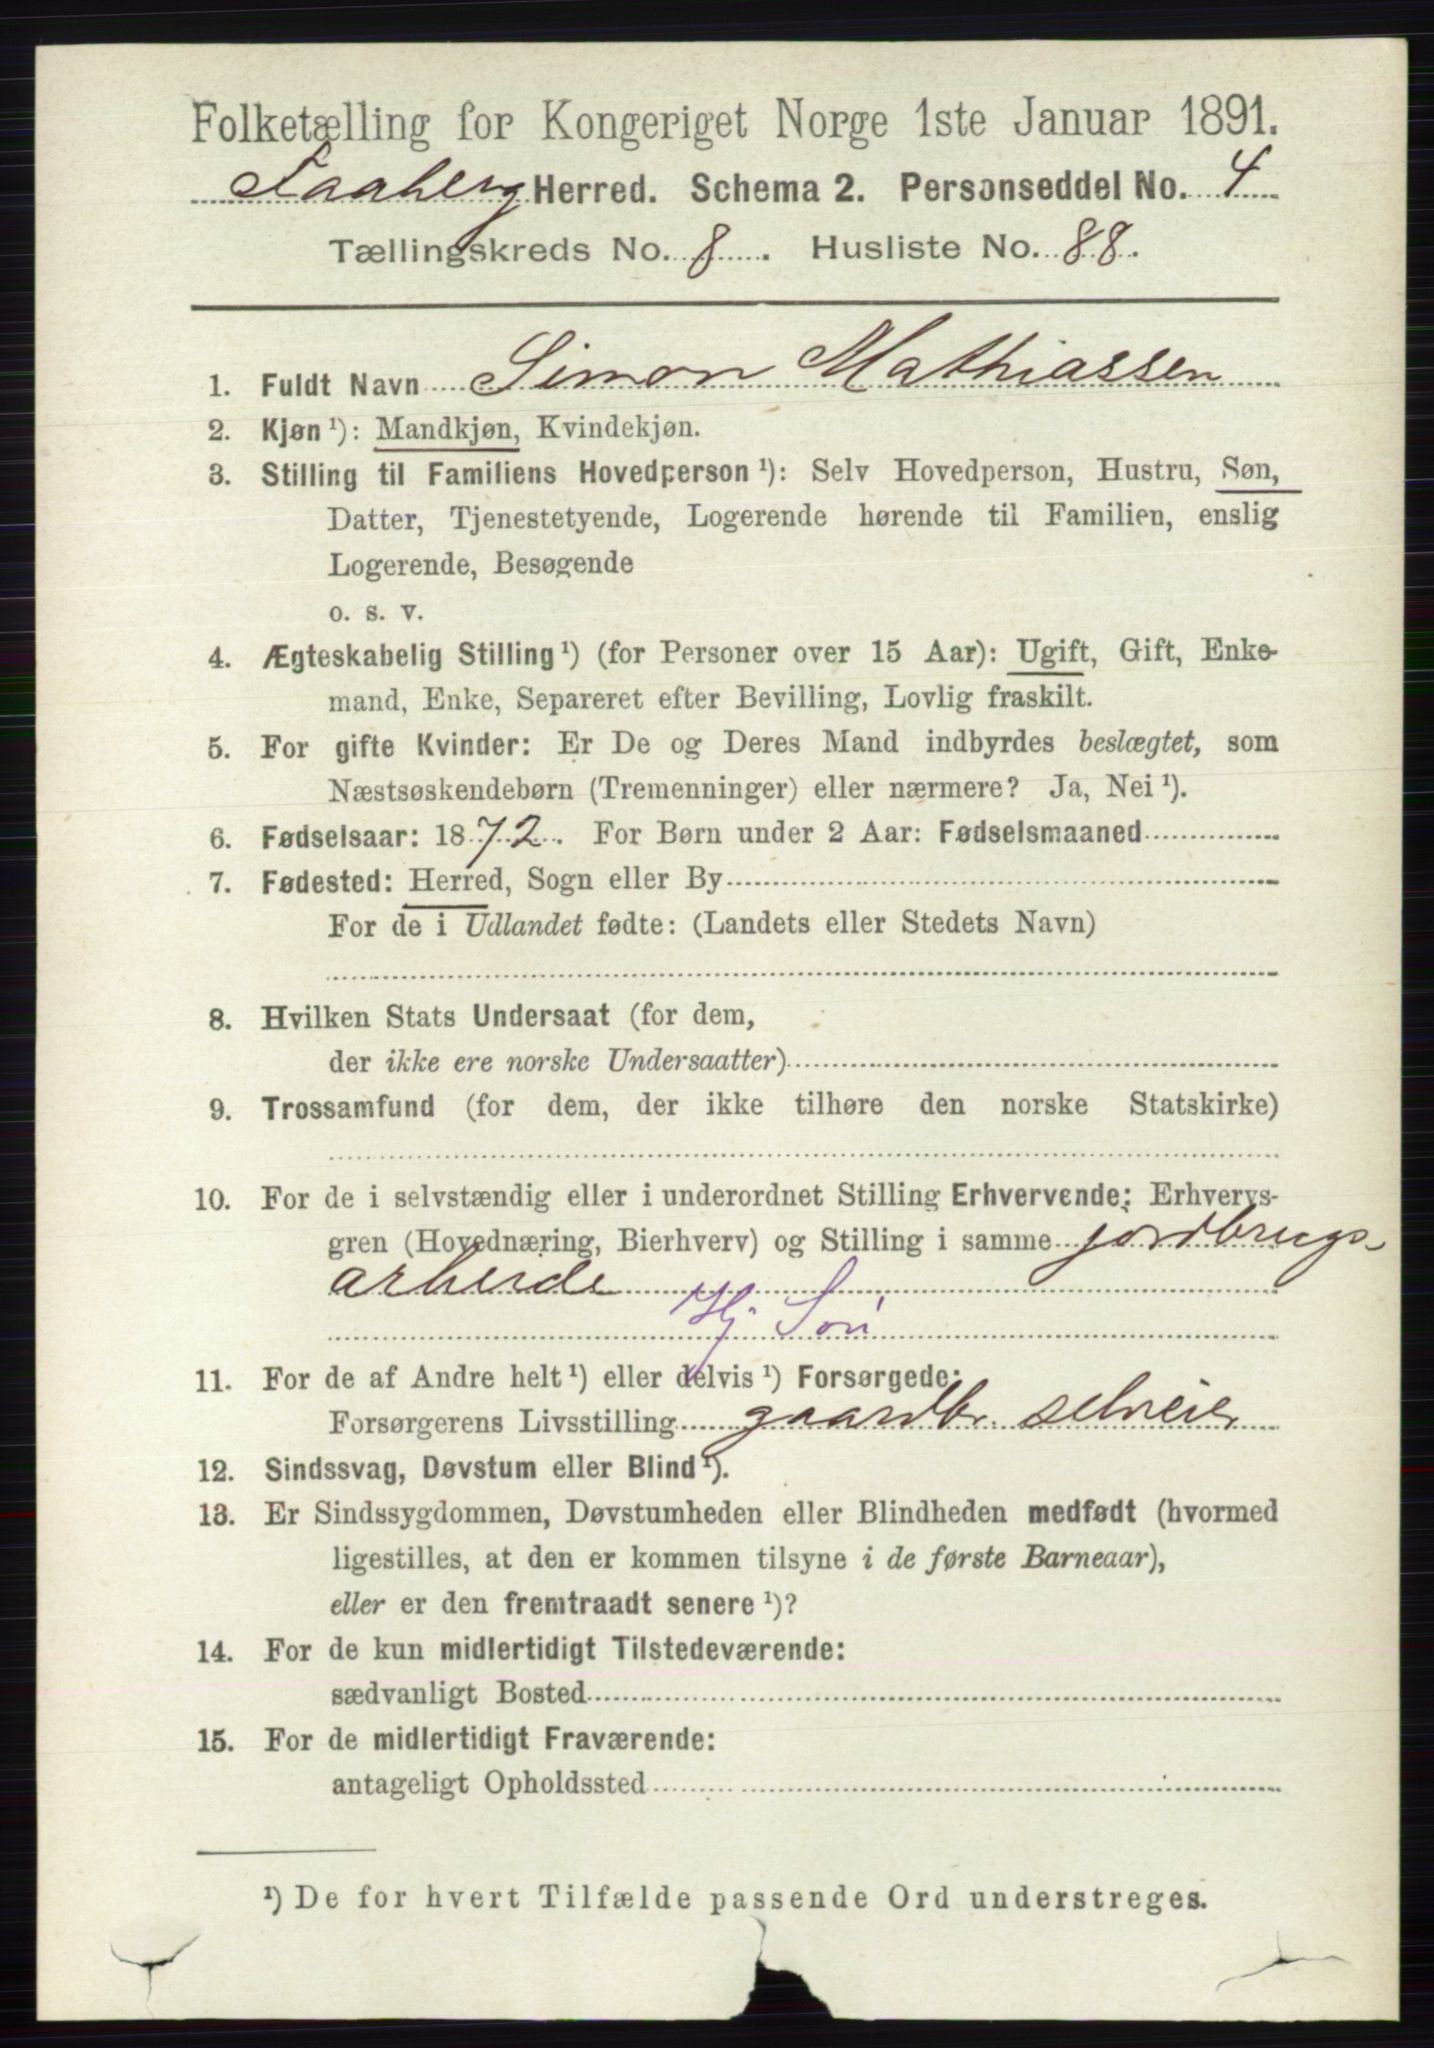 Folketælling for Kongeriget Norge 1ste Januar 1891.
Faaberg Herred. Schema 2. Personseddel No. 4
Tællingskreds No. 8. Husliste No. 88.
1. Fuldt Navn Simon Mathiassen
2. Kjøn ¹): Mandkjøn, Kvindekjøn.
3. Stilling til Familiens Hovedperson ¹): Selv Hovedperson, Hustru, Søn,
Datter, Tjenestetyende, Logerende hørende til Familien, enslig
Logerende, Besøgende
o. s. v.
4. Ægteskabelig Stilling ¹) (for Personer over 15 Aar): Ugift, Gift, Enke-
mand, Enke, Separeret efter Bevilling, Lovlig fraskilt.
5. For gifte Kvinder: Er De og Deres Mand indbyrdes beslægtet, som
Næstsøskendebørn (Tremenninger) eller nærmere? Ja, Nei ¹).
6. Fødselsaar: 1872. For Børn under 2 Aar: Fødselsmaaned
7. Fødested: Herred, Sogn eller By
For de i Udlandet fødte: (Landets eller Stedets Navn)
8. Hvilken Stats Undersaat (for dem,
der ikke ere norske Undersaatter)
9. Trossamfund (for dem, der ikke tilhøre den norske Statskirke)
10. For de i selvstændig eller i underordnet Stilling Erhvervende: Erhvervs-
gren (Hovednæring, Bierhverv) og Stilling i samme jordbrugs-
arbeide
Hj Søn
11. For de af Andre helt ¹) eller delvis ¹) Forsørgede:
Forsørgerens Livsstilling gaardbr. selveier
12. Sindssvag, Døvstum eller Blind ¹).
13. Er Sindssygdommen, Døvstumheden eller Blindheden medfødt (hvormed
ligestilles, at den er kommen tilsyne i de første Barneaar),
eller er den fremtraadt senere ¹)?
14. For de kun midlertidigt Tilstedeværende:
sædvanligt Bosted
15. For de midlertidigt Fraværende:
antageligt Opholdssted
¹) De for hvert Tilfælde passende Ord understreges.